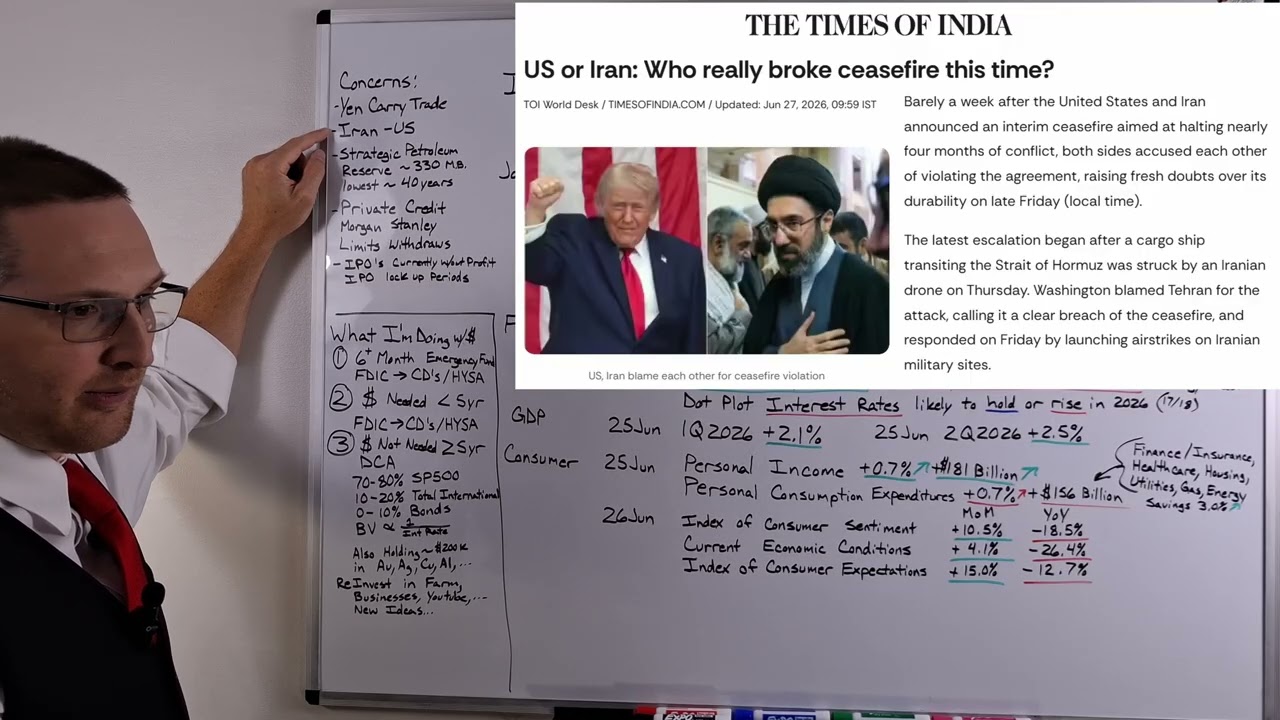 Concerns:
- Yen Carry Trade
- Iran - US
- Strategic Petroleum
Reserve ~ 330 M.B.
lowest ~ 40 years
- Private Credit
Morgan Stanley
Limits Withdraws
- IPO's Currently w/out Profit
IPO lock up Periods
What I'm Doing w/$
① 6+ Month Emergency Fund
FDIC → CD's/HYSA
② $ Needed < 5yr
FDIC → CD's/HYSA
③ $ Not Needed ≥ 5yr
DCA
70-80% SP500
10-20% Total International
0-10% Bonds
BV ∝ 1/Int Rate
Also Holding ~ $200K
in Au, Ag, Cu, Al, ...
ReInvest in Farm,
Businesses, Youtube, ...
New Ideas...
THE TIMES OF INDIA
US or Iran: Who really broke ceasefire this time?
TOI World Desk / TIMESOFINDIA.COM / Updated: Jun 27, 2026, 09:59 IST
US, Iran blame each other for ceasefire violation
Barely a week after the United States and Iran
announced an interim ceasefire aimed at halting nearly
four months of conflict, both sides accused each other
of violating the agreement, raising fresh doubts over its
durability on late Friday (local time).
The latest escalation began after a cargo ship
transiting the Strait of Hormuz was struck by an Iranian
drone on Thursday. Washington blamed Tehran for the
attack, calling it a clear breach of the ceasefire, and
responded on Friday by launching airstrikes on Iranian
military sites.
Dot Plot Interest Rates likely to hold or rise in 2026 (17/18)
GDP 25Jun 1Q2026 +2.1% 25Jun 2Q2026 +2.5%
Consumer 25Jun Personal Income +0.7% ↗ +$181 Billion ↗
Personal Consumption Expenditures +0.7% ↗ + $156 Billion
Finance/Insurance,
Healthcare, Housing,
Utilities, Gas, Energy
Savings 3.0% ↗
MoM YoY
26Jun Index of Consumer Sentiment +10.5% -18.5%
Current Economic Conditions +4.1% -26.4%
Index of Consumer Expectations +15.0% -12.7%
EXPO